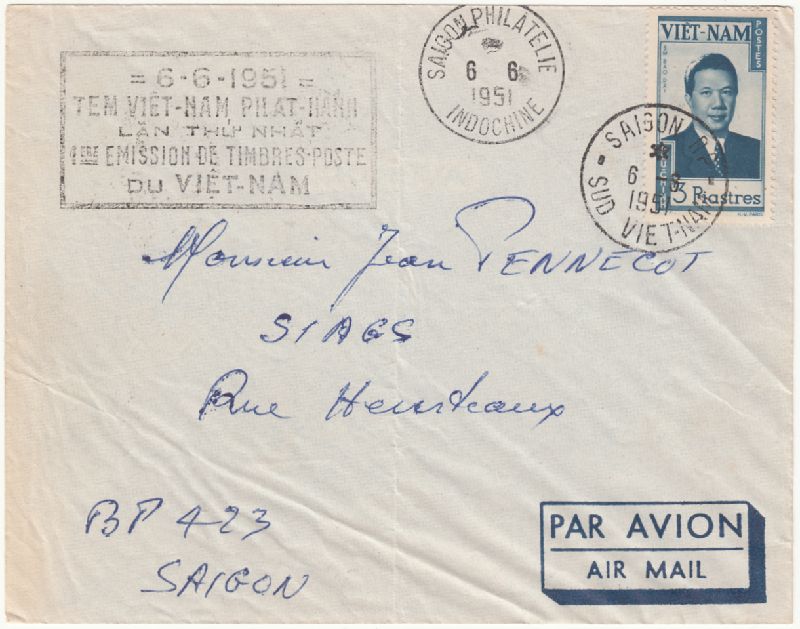 = 6-6-1951 =
TEM VIÊT-NAM PHAT-HÀNH
LẦN THỨ NHẤT
1ERE EMISSION DE TIMBRES-POSTE
DU VIÊT-NAM
SAIGON PHILATELIE
6 6
1951
INDOCHINE
VIÊT-NAM
POSTES
3 Piastres
SAIGON
6
1951
SUD VIET-NAM
Monsieur Jean PENNECOT
SIAGS
Rue Heurteaux
BP 423
SAIGON
PAR AVION
AIR MAIL